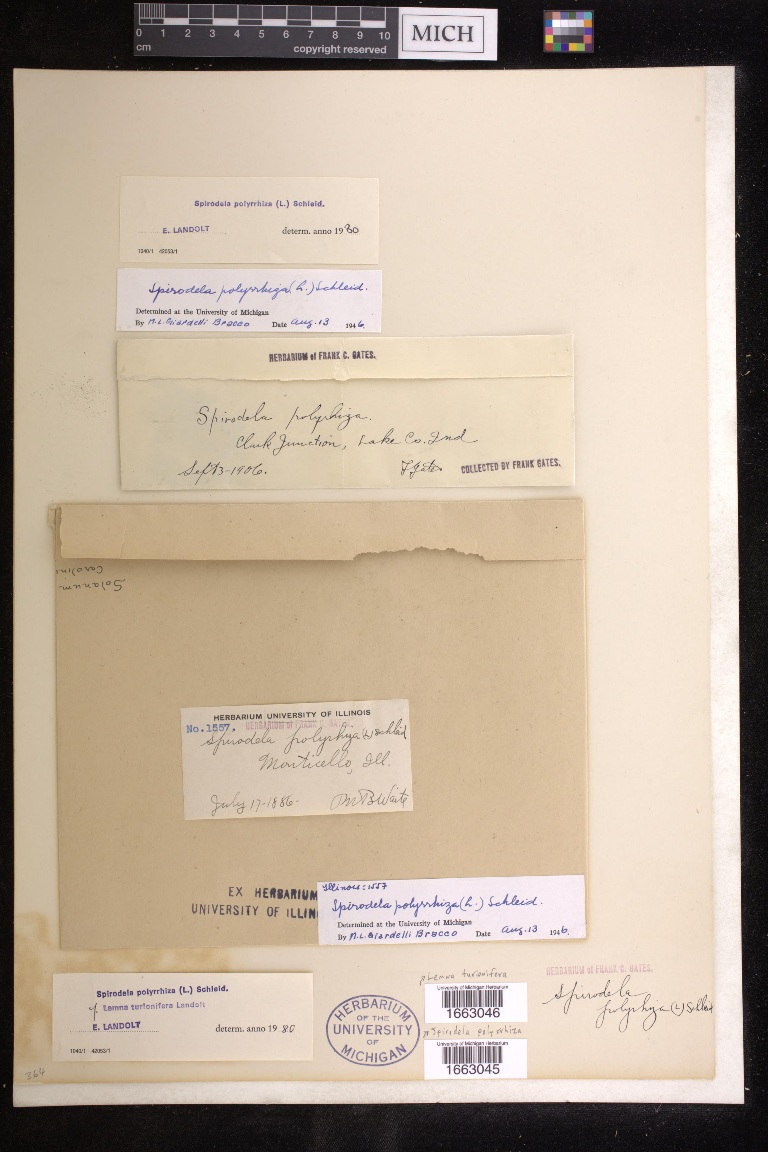 0 1 2 3 4 5 6 7 8 9 10
cm
copyright reserved
MICH
Spirodela polyrrhiza (L.) Schleid.
E. LANDOLT
determ. anno 1980
1040/1 42053/1
Spirodela polyrrhiza (L.) Schleid.
Determined at the University of Michigan
By M.L. Giardelli Bracco Date Aug. 13 1946
HERBARIUM of FRANK C. GATES.
Spirodela polyrhiza.
Clark Junction, Lake Co. Ind
Sept 3-1906.
F Gates COLLECTED BY FRANK GATES.
Carolin
Solanum
HERBARIUM UNIVERSITY OF ILLINOIS
No. 1557. HERBARIUM of FRANK C. GATES.
Spirodela polyrhiza (L) Schleid
Monticello, Ill.
July 17-1886. M B Waite
EX HERBARIUM
UNIVERSITY OF ILLIN
Illinois: 1557
Spirodela polyrrhiza (L.) Schleid.
Determined at the University of Michigan
By M.L. Giardelli Bracco Date Aug. 13 1946
Spirodela polyrrhiza (L.) Schleid.
cf Lemna turionifera Landolt
E. LANDOLT
determ. anno 1980
1040/1 42053/1
364
HERBARIUM
OF THE
UNIVERSITY
OF
MICHIGAN
Lemna turionifera
University of Michigan Herbarium
1663046
Spirodela polyrrhiza
University of Michigan Herbarium
1663045
HERBARIUM of FRANK C. GATES.
Spirodela
polyrhyza (L) Schleid